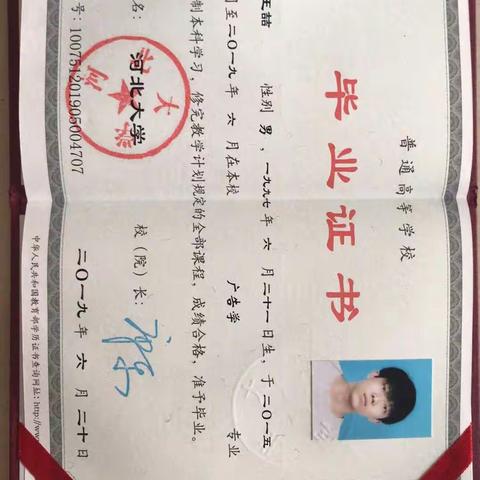 普通高等学校
毕业证书
喆 性别 男，一九九七年 六 月 二十一日生，于二〇一五
至二〇一九年 六 月在本校 广告学 专业
制本科学习，修完教学计划规定的全部课程，成绩合格，准予毕业。
名：河北大学 校（院）长：
号：100751201905004707 二〇一九年 六 月 二十日
中华人民共和国教育部学历证书查询网址：http://w